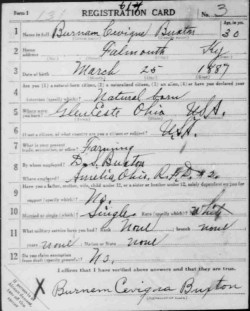 Form 1
REGISTRATION CARD
No. 3
1 Name in full Burnam Cevigua Buxton Age, in yrs. 30
2 Home address Falmouth Ky
3 Date of birth March 25 1887
4 Are you (1) a natural-born citizen, (2) a naturalized citizen, (3) an alien, (4) or have you declared your intention (specify which)? Natural born
5 Where were you born? Ohio U.S.A.
6 If not a citizen, of what country are you a citizen or subject? U.S.A.
7 What is your present trade, occupation, or office? Farming
8 By whom employed? Buxton
Where employed? Amelia, Ohio. R.F.D. #2.
9 Have you a father, mother, wife, child under 12, or a sister or brother under 12, solely dependent on you for support (specify which)? No.
10 Married or single (which)? Single Race (specify which)? White
11 What military service have you had? Rank None branch none
years none Nation or State none
12 Do you claim exemption from draft (specify grounds)? No.
I affirm that I have verified above answers and that they are true.
X Burnam Cevigua Buxton